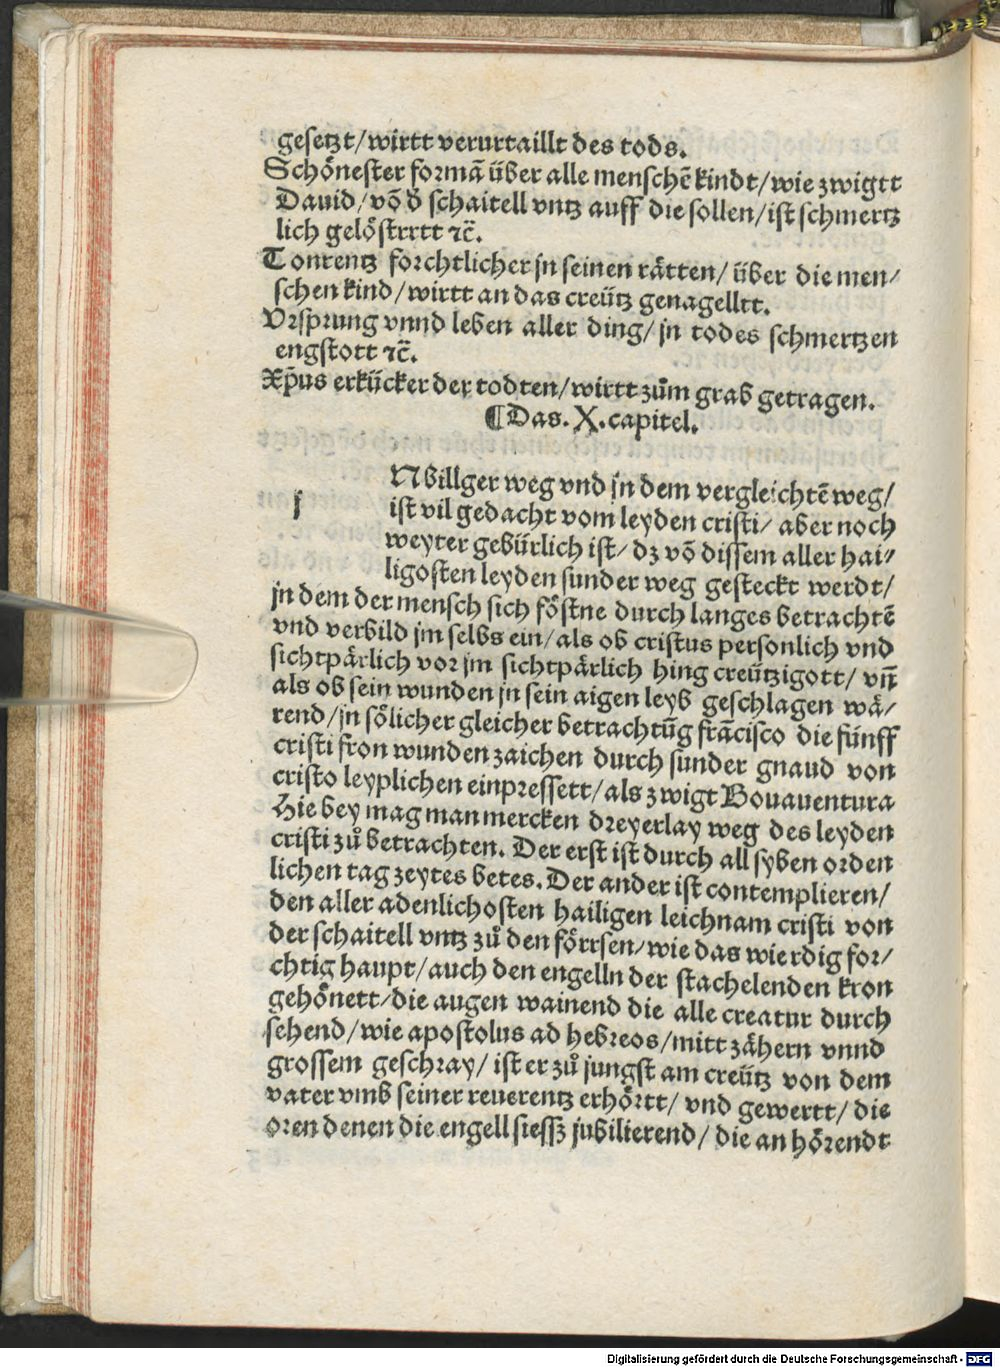 gesetzt/wirtt verurtaillt des tods.
Schönester formã über alle menschẽ kindt/wie zwigtt
Dauid/võ d̕ schaitell vntz auff die sollen/ist schmertz
lich gelöstrrtt ⁊c̃.
Tonrentz forchtlicher jn seinen rätten/ über die men/
schen kind/wirtt an das creütz genagelltt.
Vrsprung vnnd leben aller ding/jn todes schmertzen
engstott ⁊c̃.
Xp̃us erkücker der todten/wirtt zům grab getragen.
¶Das. X. capitel.
j
NBillger weg vnd jn dem vergleichtẽ weg/
ist vil gedacht vom leyden cristi/ aber noch
weyter gebürlich ist/ dz võ dissem aller hai/
ligosten leyden sunder weg gesteckt werdt/
jn dem der mensch sich föstne durch langes betrachtẽ
vnd verbild jm selbs ein/als ob cristus personlich vnd
sichtpärlich vor jm sichtpärlich hing creützigott/ vñ
als ob sein wunden jn sein aigen leyb geschlagen wä/
rend/jn sölicher gleicher betrachtũg frãcisco die fünff
cristi fron wunden zaichen durch sunder gnaud von
cristo leyplichen einpressett/als zwigt Bonauentura
Hie bey mag man mercken dreyerlay weg des leyden
cristi zů betrachten. Der erst ist durch all syben orden
lichen tag zeytes betes. Der ander ist contemplieren/
den aller adenlichosten hailigen leichnam cristi von
der schaitell vntz zů den förrsen/wie das wierdig for/
chtig haupt/auch den engelln der stachelenden kron
gehönett/die augen wainend die alle creatur durch
sehend/wie apostolus ad hebreos/mitt zähern vnnd
grossem geschray/ ist er zů jungst am creütz von dem
vater vmb seiner reuerentz erhörtt/ vnd gewertt/ die
oren denen die engell siessz jubilierend/ die an hörendt
Digitalisierung gefördert durch die Deutsche Forschungsgemeinschaft - DFG